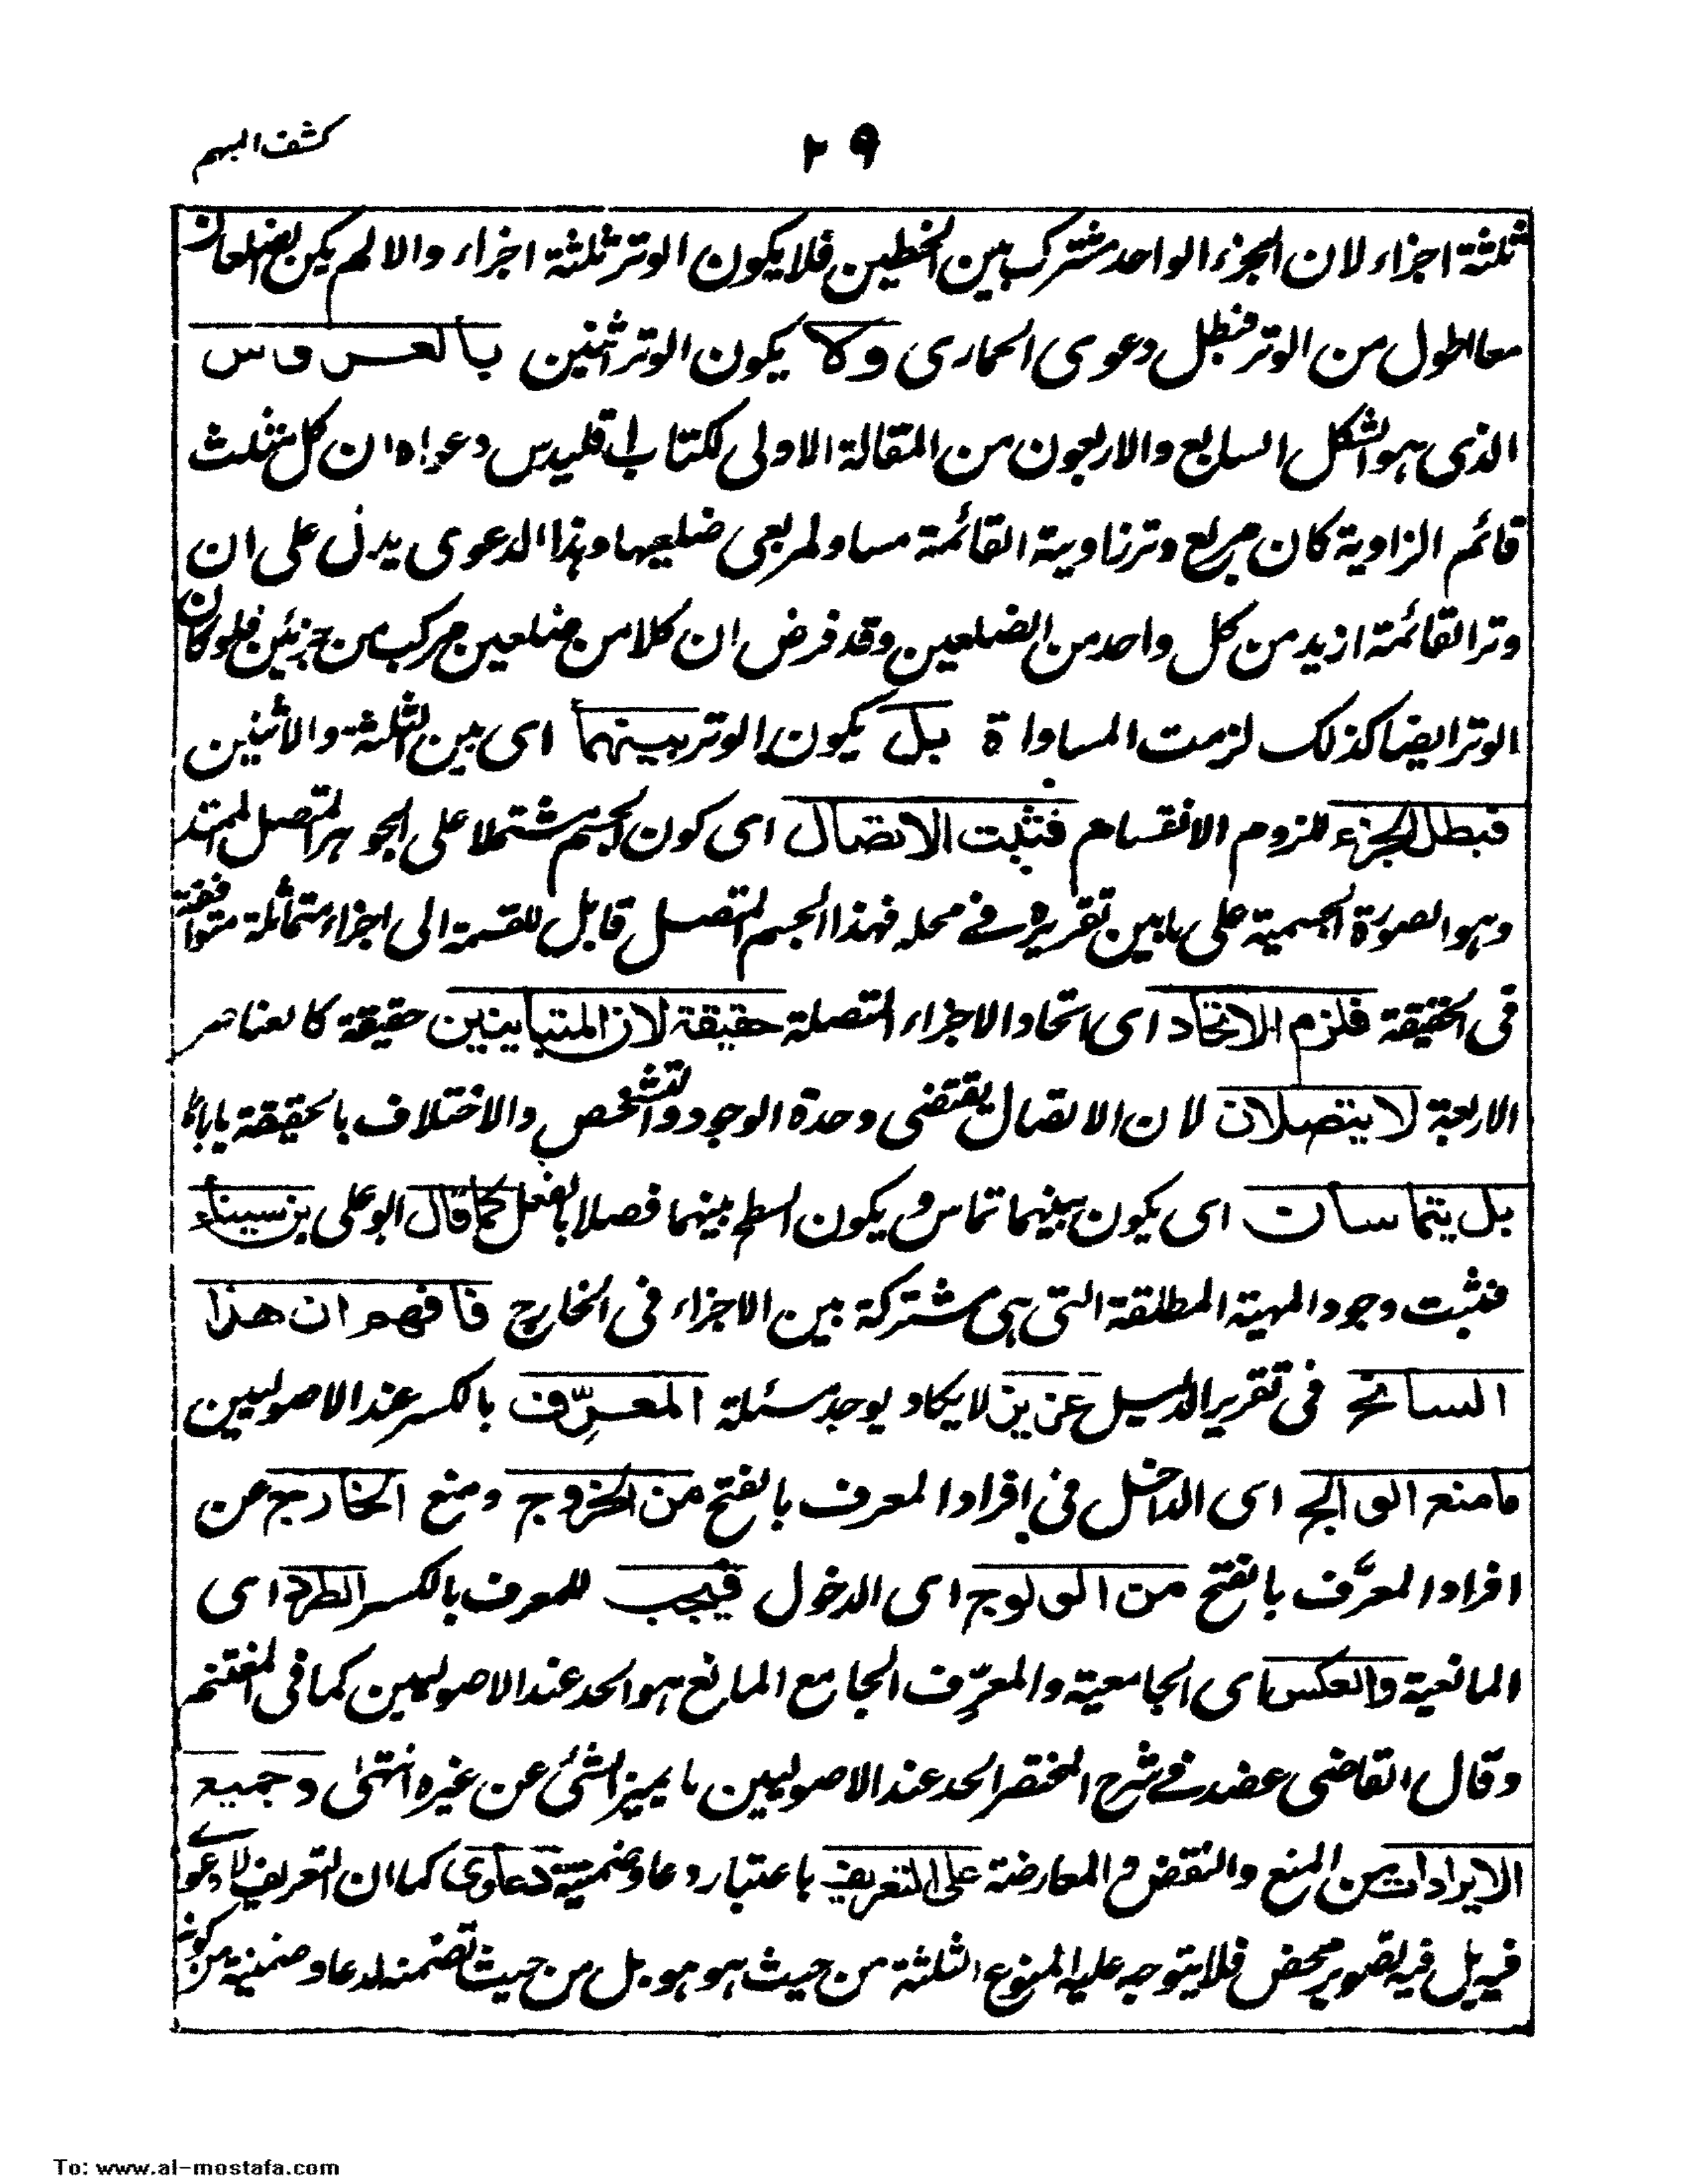 ٢٩
كشف المبهم
ثلثة اجزاء لان الجزء الواحد مشترك بين الخطين فلا يكون الوتر ثلثة اجزاء والا لم يكن الضلعان
معا اطول من الوتر فبطل دعوى الحمارى ولا يكون الوتر اثنين بالعروس
الذى هو الشكل السابع والاربعون من المقالة الاولى لكتاب اقليدس دعواه ان كل مثلث
قائم الزاوية كان مربع وتر زاوية القائمة مساو لمربعى ضلعيها وهذا الدعوى يدل على ان
وتر القائمة ازيد من كل واحد من الضلعين وقد فرض ان كلا من ضلعين مركب من جزئين فلو كان
الوتر ايضا كذلك لزمت المساواة بل يكون الوتر بينهما اى بين الثلثة والاثنين
فبطل الجزء للزوم الانقسام فثبت الاتصال اى كون الجسم مشتملا على الجوهر المتصل الممتد
وهو الصورة الجسمية على ما بين تقريره فے محله فهذا الجسم المتصل قابل للقسمة الى اجزاء متماثلة متوافقة
فى الحقيقة فلزم الاتحاد اى اتحاد الاجزاء المتصلة حقيقة لان المتباينين حقيقة كالعناصر
الاربعة لا يتصلان لان الاتصال يقتضى وحدة الوجود والتشخص والاختلاف بالحقيقة ياباه
بل يتماسان اى يكون بينهما تماس و يكون السطح بينهما فصلا بالفعل كما قال ابو على بن سيناء
فثبت وجود المهية المطلقة التى هى مشتركة بين الاجزاء فى الخارج فافهم ان هذا
السانح فى تقرير الدليل عزيز لا يكاد يوجد مسئلة المعرِّف بالكسر عند الاصوليين
ما منع الوالج اى الداخل فى افراد المعرف بالفتح من الخروج ومنع الخارج عن
افراد المعرَّف بالفتح من الولوج اى الدخول فيجب للمعرف بالكسر الطرد اى
المانعية والعكس اى الجامعية والمعرِّف الجامع المانع هو الحد عند الاصوليين كما فى المغتنم
وقال القاضى عضد فے شرح المختصر الحد عند الاصوليين ما يميز الشئ عن غيره انتهى وجميع
الايرادات من المنع والنقض و المعارضة على التعريف باعتبار دعاو ضمنية دعاوى كما ان التعريف لا دعوے
فيه بل فيه تصوير محض فلا يتوجه عليه المنوع الثلثة من حيث هو هو بل من حيث تضمنه لدعاو ضمنية من كونه
To: www.al-mostafa.com